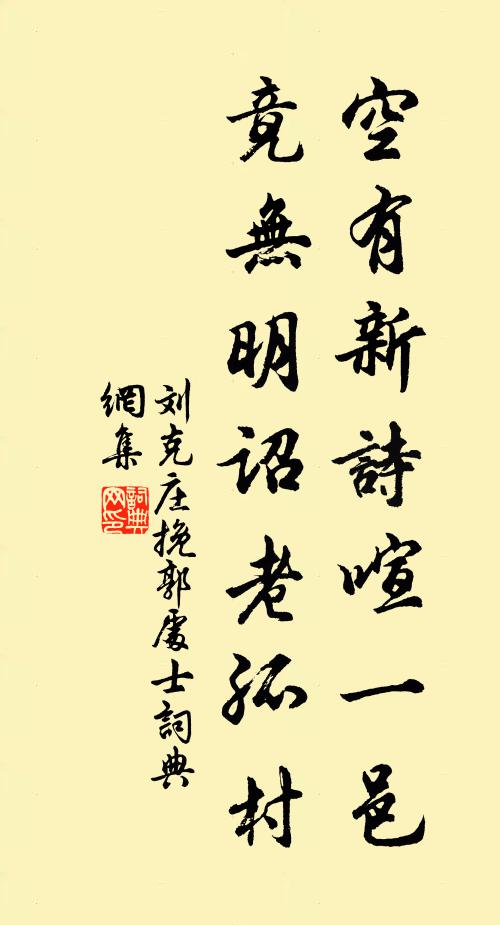 空有新詩喧一邑
竟無明詔老孤村
刘克庄挽郭處士詞典
網集
詞典
网印